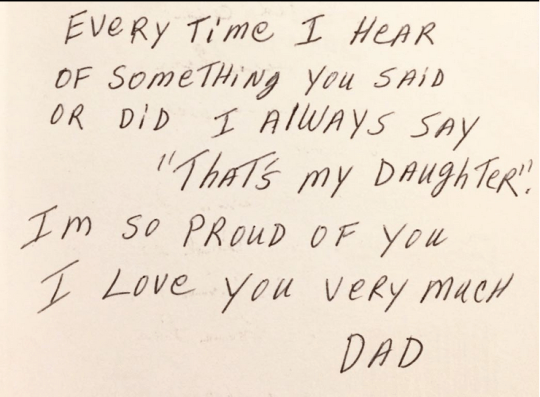 EVERY TIME I HEAR
OF SOMETHING YOU SAID
OR DID I ALWAYS SAY
"THAT'S MY DAUGHTER".
IM SO PROUD OF YOU
I LOVE YOU VERY MUCH
DAD